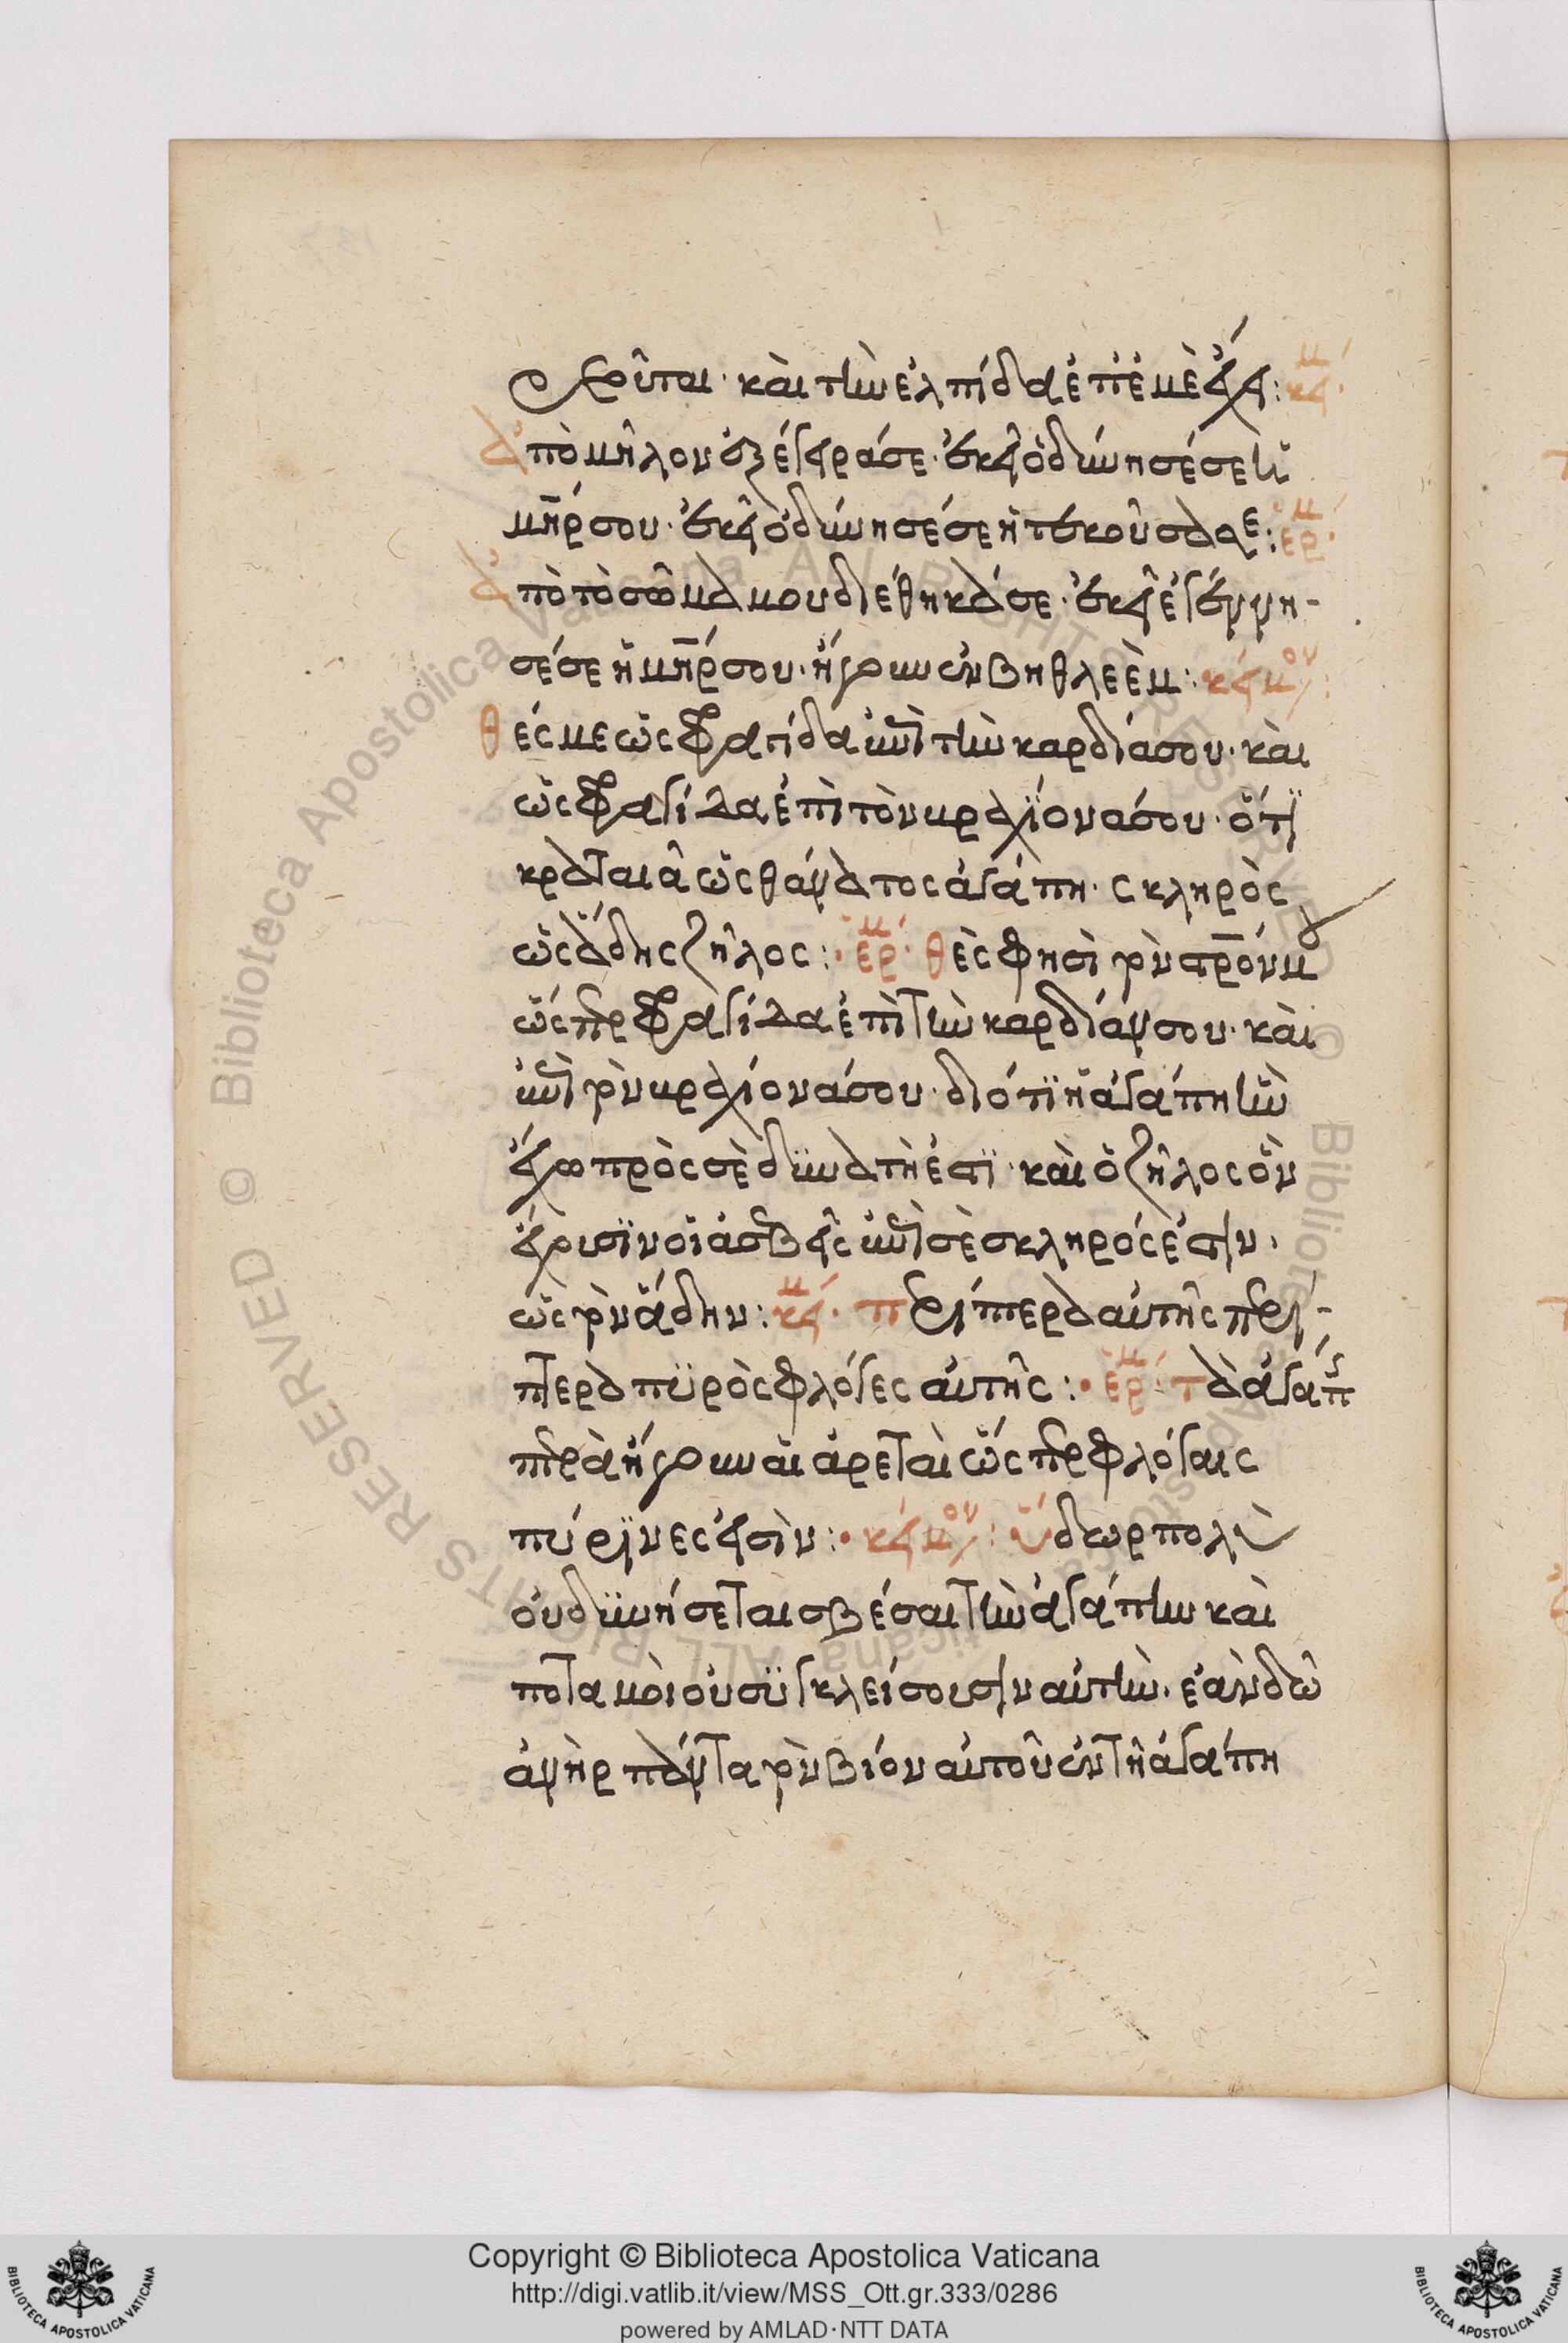 χροῦται· καὶ τὴν ἐλπίδα ἐπ' ἐμὲ ἔχει: κεί(μ).
ἀπὸ μῆλον ἐξέγειρά σε· ἐκεῖ ὀδίνησέ σε ἡ
μηρ σου· ἐκεῖ ὀδίνησέ σε ἡ τεκοῦσά σε: ἑρ(μ).
ἀπὸ τὸ σῶμά μου διέθηκά σε· ἐκεῖ ἐγέννη-
σέ σε ἡ μηρ σου· ἤγουν ἐν βηθλεὲμ: κείμου:
θές με ὡς σφραγίδα ἐπὶ τὴν καρδία σου· καὶ
ὡς σφραγίδα ἐπὶ τὸν βραχίονά σου· ὅτι
κραταιὰ ὡς θάνατος ἀγάπη· σκληρὸς
ὡς ἅδης ζῆλος: ἑρ(μ). θὲς φησὶ τὸν σρον μου
ὥσπερ σφραγίδα ἐπὶ τὴν καρδίαν σου· καὶ
ἐπὶ τὸν βραχίονά σου· διότι ἡ ἀγάπη ἣν
ἔχω πρὸς σὲ δυνατή ἐστι· καὶ ὁ ζῆλος ὃν
ἔχουσιν οἱ ἀσεβεῖς ἐπὶ σὲ σκληρός ἐστιν.
ὡς τὸν ἅδην: κεί(μ). περίπτερα αὐτῆς περί-
πτερα πυρὸς φλόγες αὐτῆς: ἑρ(μ): τὰ ἀγαπ
πτερὰ ἤγουν αἱ ἀρεταὶ ὥσπερ φλόγαις
πύρινες εἰσὶν: κείμου: ὕδωρ πολὺ
οὐ δυνήσεται σβέσαι τὴν ἀγάπην καὶ
ποταμοὶ οὐ συγκλείσουσιν αὐτὴν. ἐὰν δῶ
ἀνὴρ πάντα τὸν βίον αὐτοῦ ἐν τῇ ἀγάπη
Copyright © Biblioteca Apostolica Vaticana
http://digi.vatlib.it/view/MSS_Ott.gr.333/0286
powered by AMLAD·NTT DATA